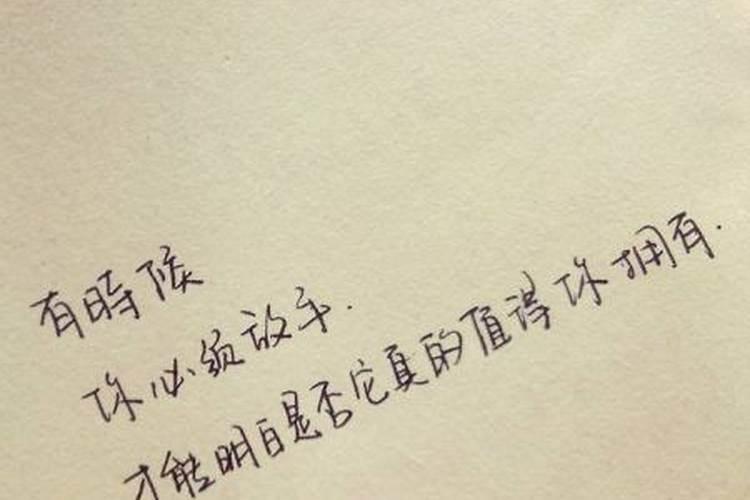 有時候
你必须放手.
才能明白是否它真的值得你拥有.